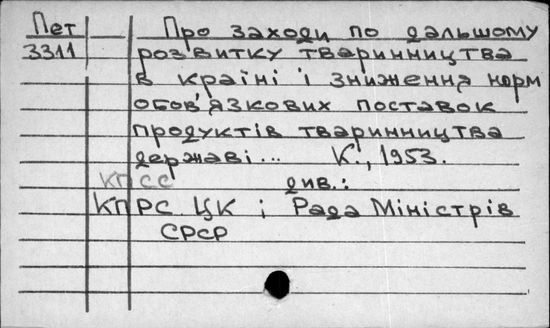 Пет Про заходи по дальшому
3311 розвитку тваринництва
в країні і зниження норм
обов'язкових поставок
продуктів тваринництва
державі... К., 1953.
КПСС див.:
КПРС ЦК і Рада Міністрів
СРСР